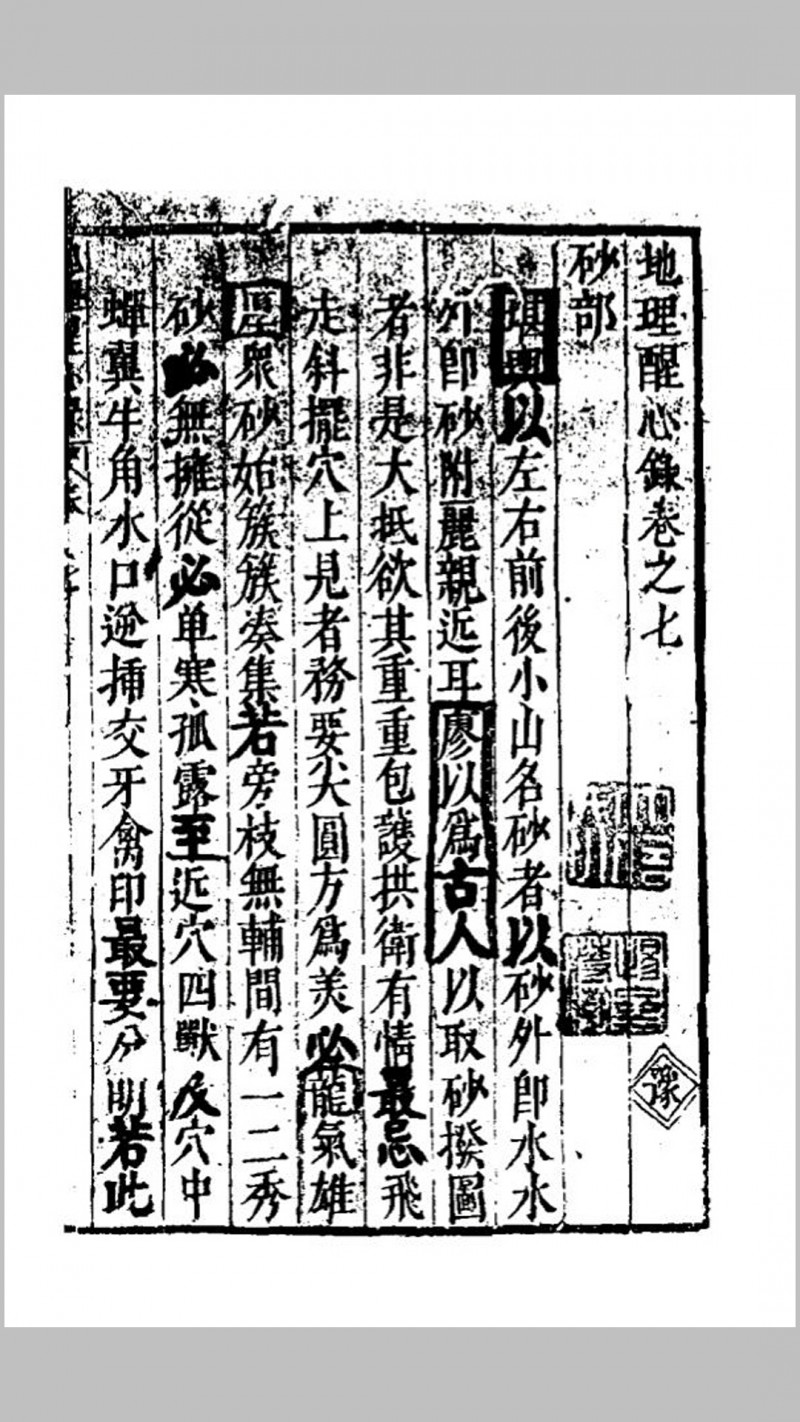 地理醒心錄卷之七
砂部
堪輿以左右前後小山名砂者以砂外卽水水
外卽砂附麗親近耳廖以爲古人以取砂撥圖
者非是大抵欲其重重包護拱衛有情最忌飛
走斜擺穴上見者務要尖圓方爲美必龍氣雄
厚衆砂始簇簇湊集若旁枝無輔間有一二秀
砂必無擁從必单寒孤露至近穴四獸及穴中
蟬翼牛角水口逆揷交牙禽印最要分明若此
豫